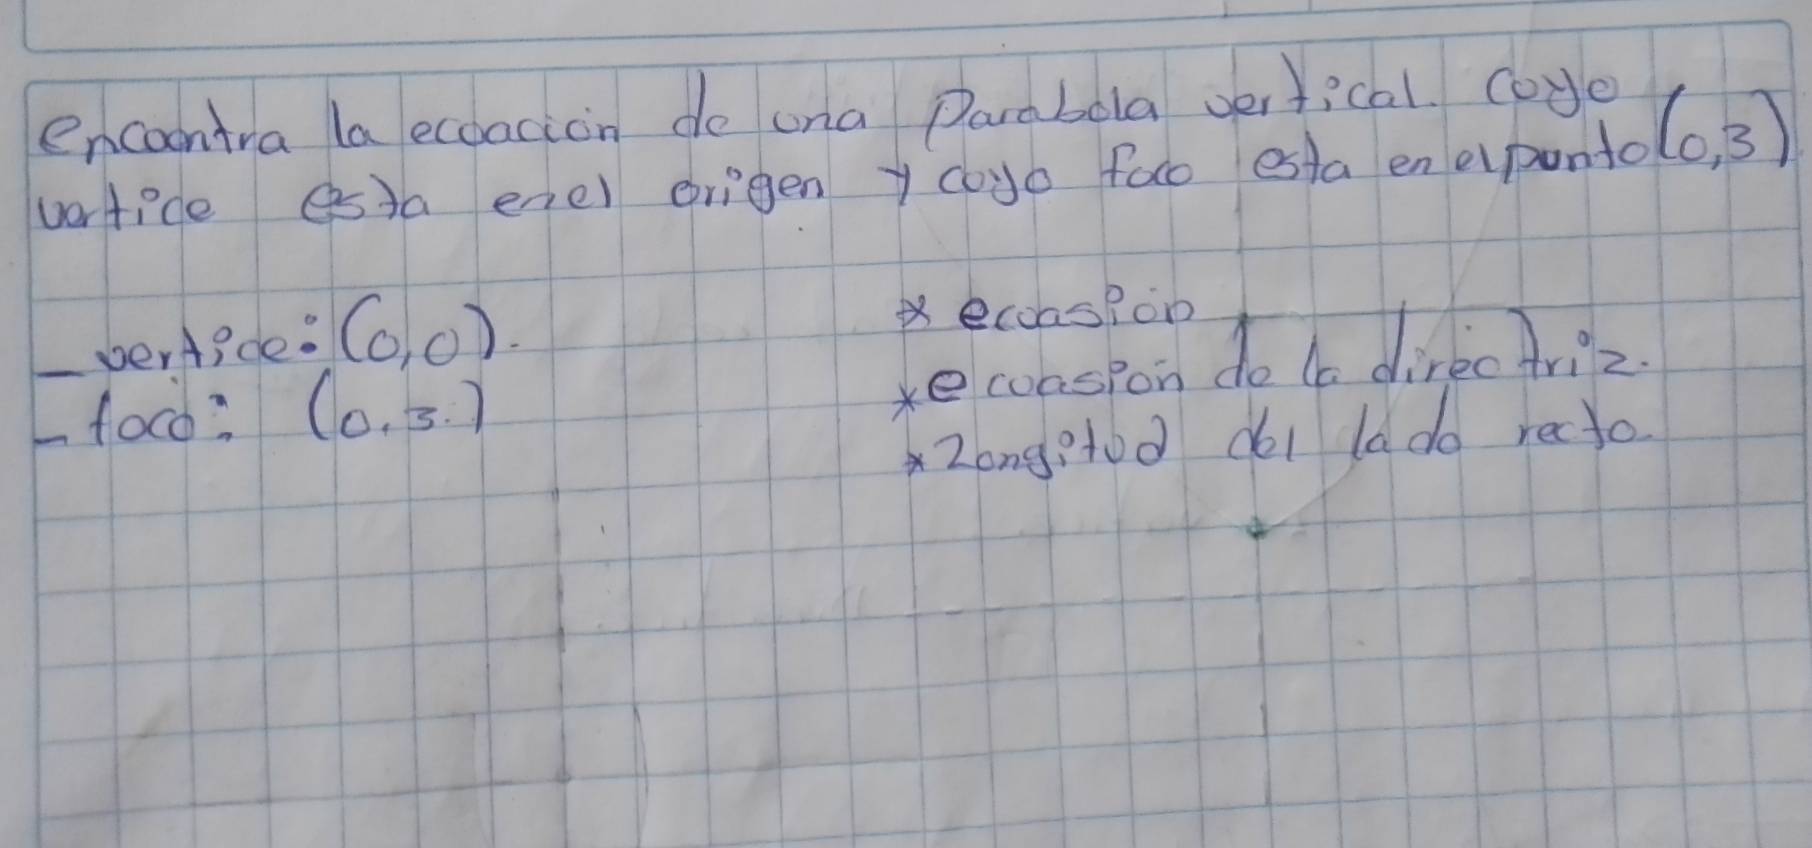 encoontra la ecoacion de ona Parabola vertical. coyo
vertice esta enel origen y coyo foco esta en el punto (0,3)
- vertice: (0,0).
- foco: (0,3.)
* ecoasion
* ecoasion de la directriz.
* Longitod del lado recto.